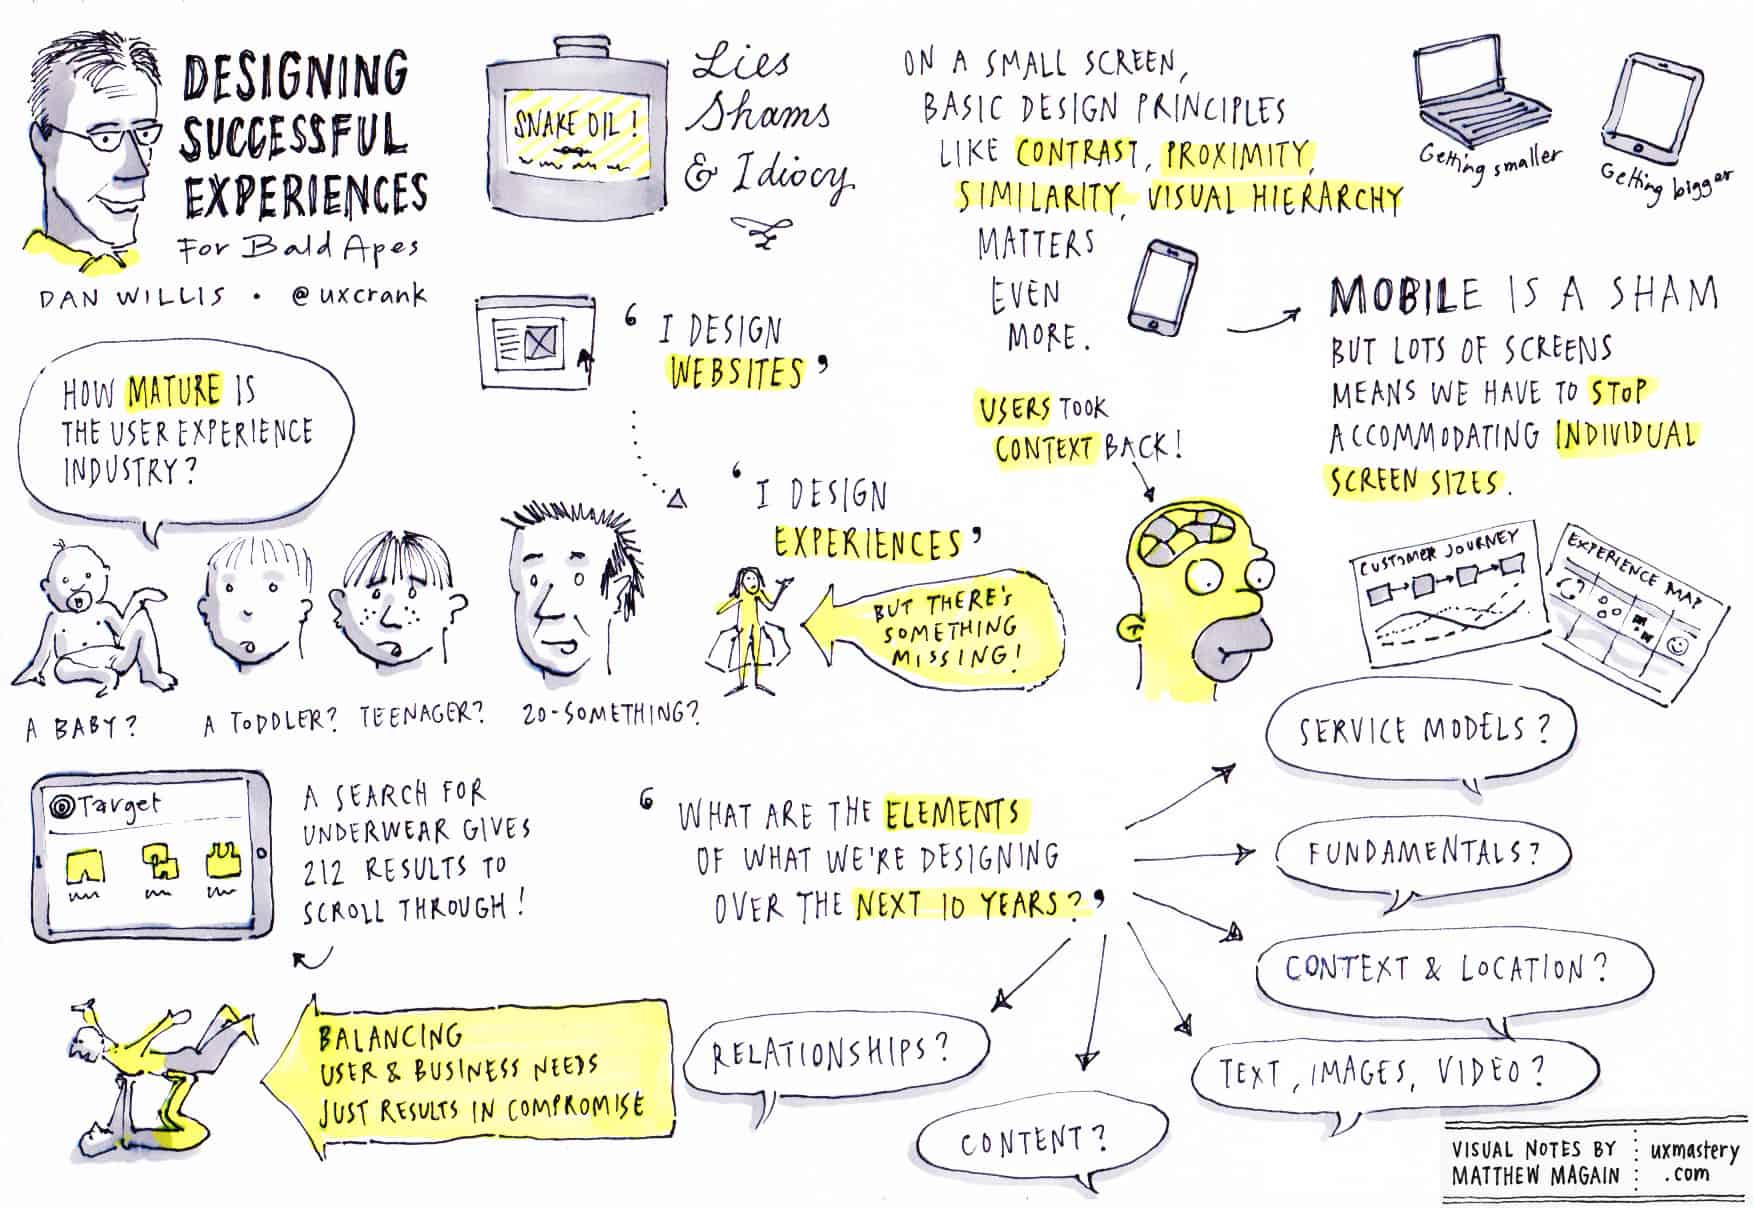 DESIGNING
SUCCESSFUL
EXPERIENCES
For Bald Apes
DAN WILLIS • @uxcrank
SNAKE OIL!
Lies
Shams
& Idiocy
ON A SMALL SCREEN,
BASIC DESIGN PRINCIPLES
LIKE CONTRAST, PROXIMITY,
SIMILARITY, VISUAL HIERARCHY
MATTERS
EVEN
MORE.
Getting smaller
Getting bigger
MOBILE IS A SHAM
BUT LOTS OF SCREENS
MEANS WE HAVE TO STOP
ACCOMMODATING INDIVIDUAL
SCREEN SIZES.
HOW MATURE IS
THE USER EXPERIENCE
INDUSTRY?
A BABY?
A TODDLER?
TEENAGER?
20-SOMETHING?
‘ I DESIGN
WEBSITES ’
‘ I DESIGN
EXPERIENCES ’
BUT THERE'S
SOMETHING
MISSING!
USERS TOOK
CONTEXT BACK!
CUSTOMER JOURNEY
EXPERIENCE MAP
Target
A SEARCH FOR
UNDERWEAR GIVES
212 RESULTS TO
SCROLL THROUGH!
BALANCING
USER & BUSINESS NEEDS
JUST RESULTS IN COMPROMISE
‘ WHAT ARE THE ELEMENTS
OF WHAT WE'RE DESIGNING
OVER THE NEXT 10 YEARS? ’
SERVICE MODELS?
FUNDAMENTALS?
CONTEXT & LOCATION?
TEXT, IMAGES, VIDEO?
CONTENT?
RELATIONSHIPS?
VISUAL NOTES BY
MATTHEW MAGAIN
uxmastery
.com